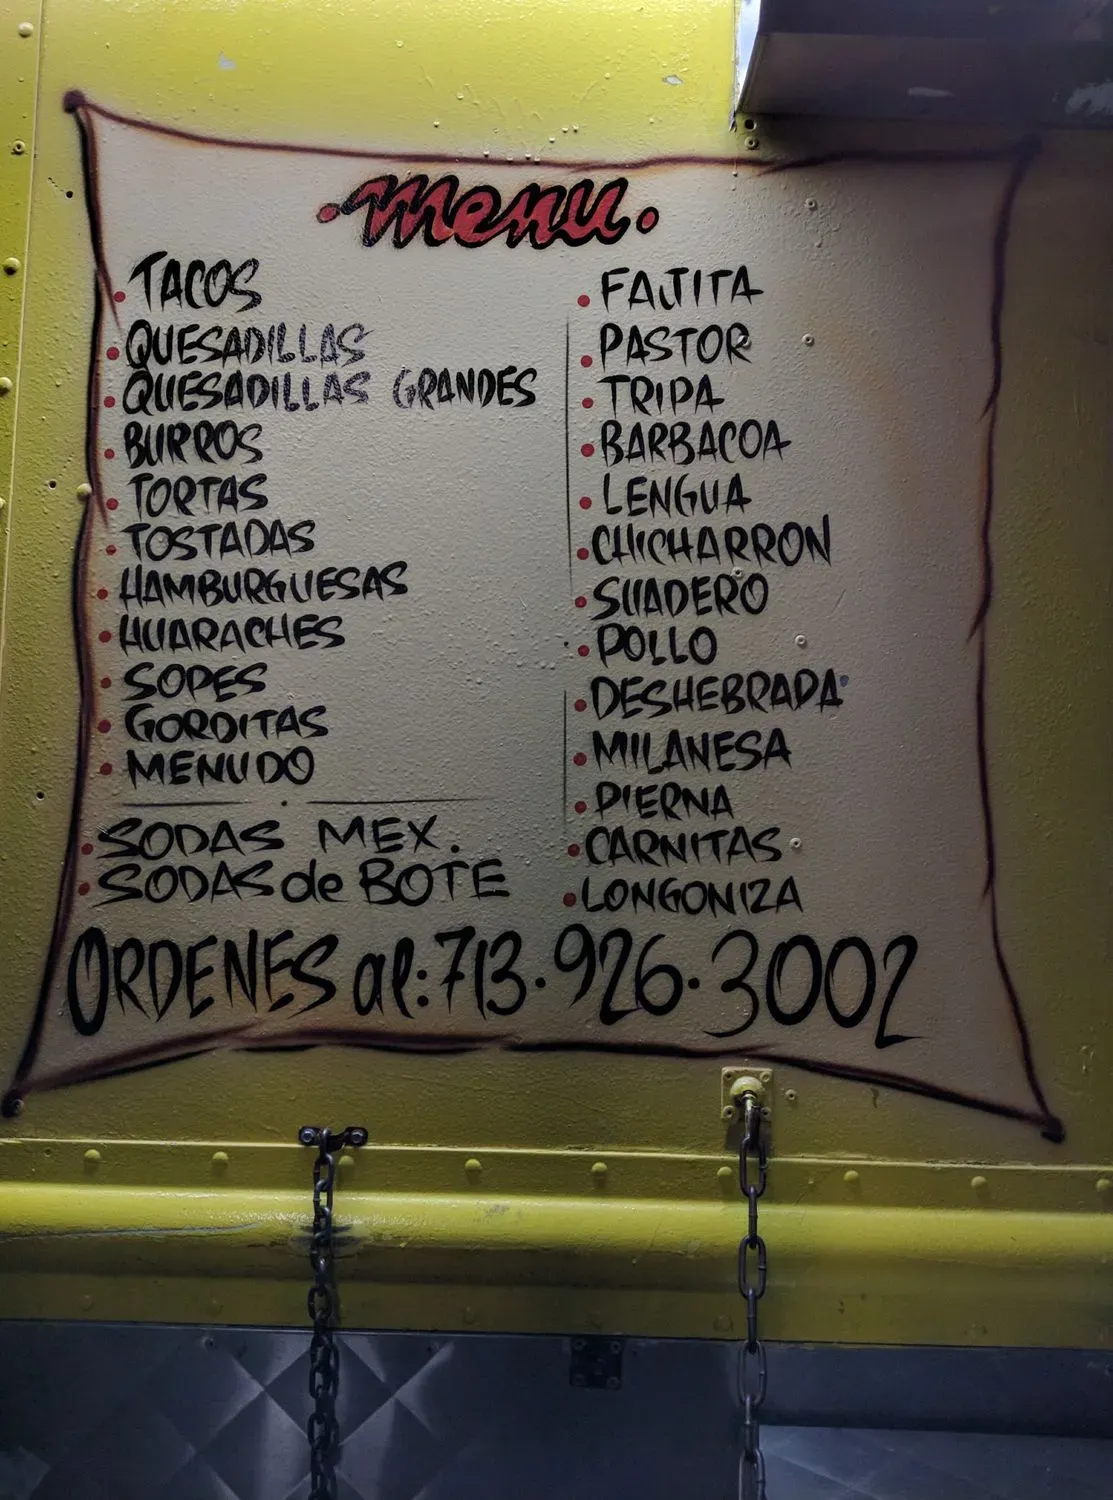 menu
TACOS
QUESADILLAS
QUESADILLAS GRANDES
BURROS
TORTAS
TOSTADAS
HAMBURGUESAS
HUARACHES
SOPES
GORDITAS
MENUDO
SODAS MEX.
SODAS de BOTE
FAJITA
PASTOR
TRIPA
BARBACOA
LENGUA
CHICHARRON
SUADERO
POLLO
DESHEBRADA
MILANESA
PIERNA
CARNITAS
LONGONIZA
ORDENES al: 713.926.3002